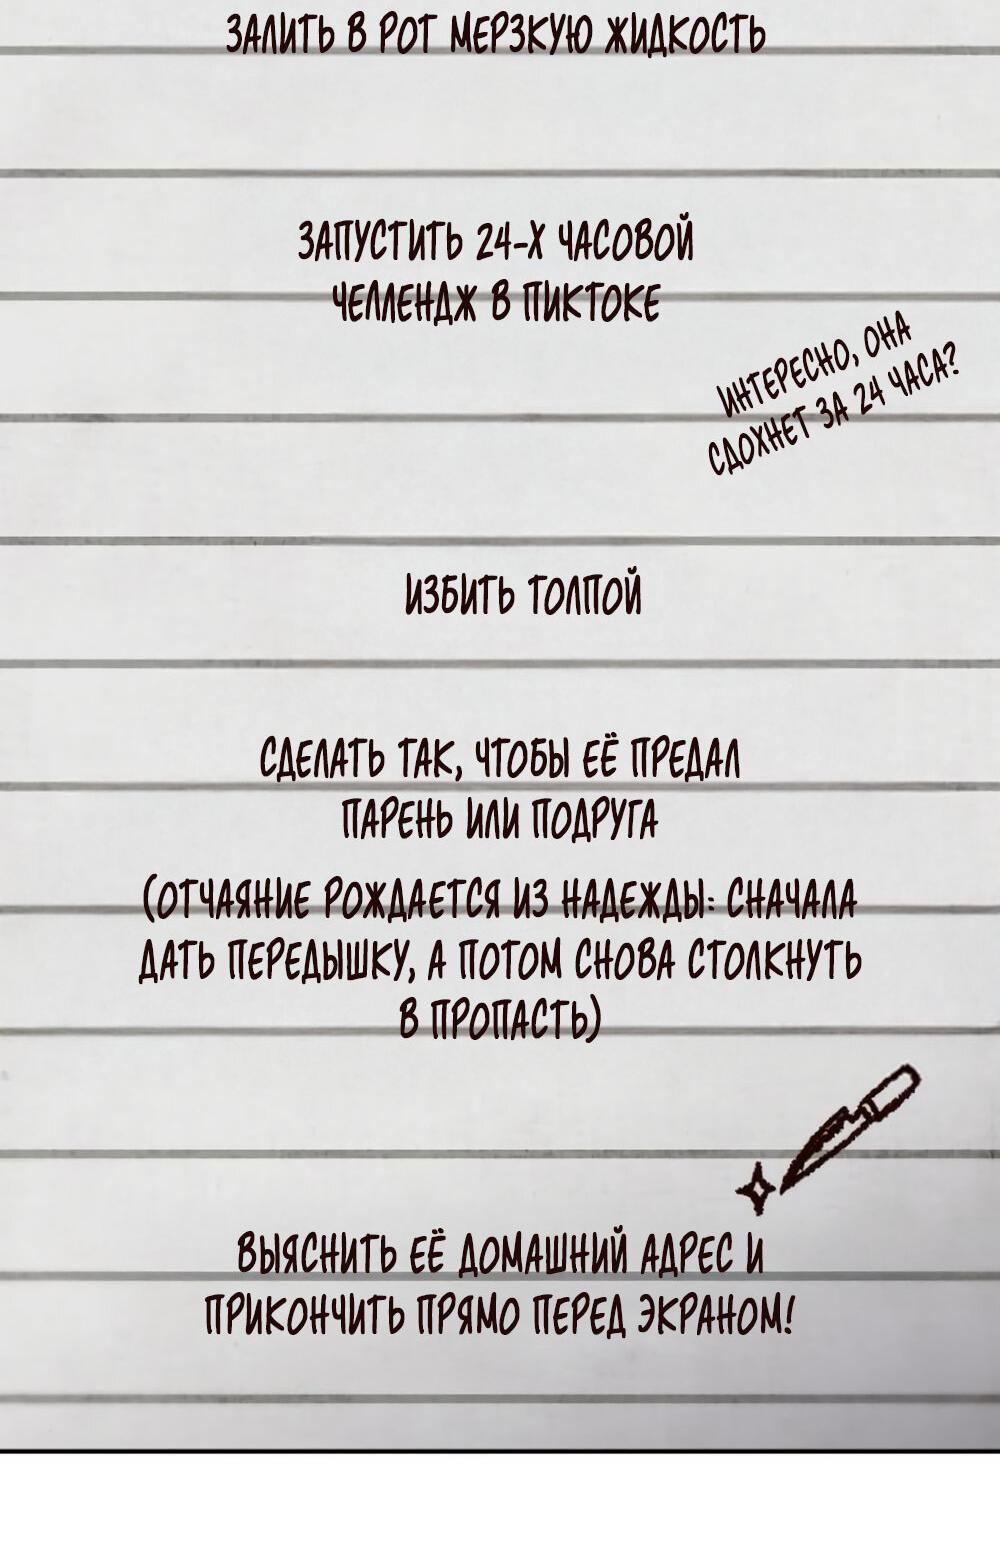 ЗАЛИТЬ В РОТ МЕРЗКУЮ ЖИДКОСТЬ
ЗАПУСТИТЬ 24-Х ЧАСОВОЙ
ЧЕЛЛЕНДЖ В ПИКТОКЕ
ИНТЕРЕСНО, ОНА
СДОХНЕТ ЗА 24 ЧАСА?
ИЗБИТЬ ТОЛПОЙ
СДЕЛАТЬ ТАК, ЧТОБЫ ЕЁ ПРЕДАЛ
ПАРЕНЬ ИЛИ ПОДРУГА
(ОТЧАЯНИЕ РОЖДАЕТСЯ ИЗ НАДЕЖДЫ: СНАЧАЛА
ДАТЬ ПЕРЕДЫШКУ, А ПОТОМ СНОВА СТОЛКНУТЬ
В ПРОПАСТЬ)
ВЫЯСНИТЬ ЕЁ ДОМАШНИЙ АДРЕС И
ПРИКОНЧИТЬ ПРЯМО ПЕРЕД ЭКРАНОМ!